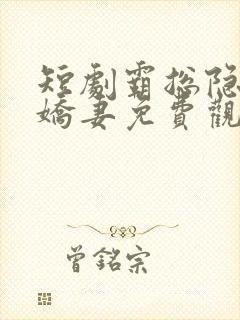 短劇霸總隐
嬌妻免費觀
曾銘宗